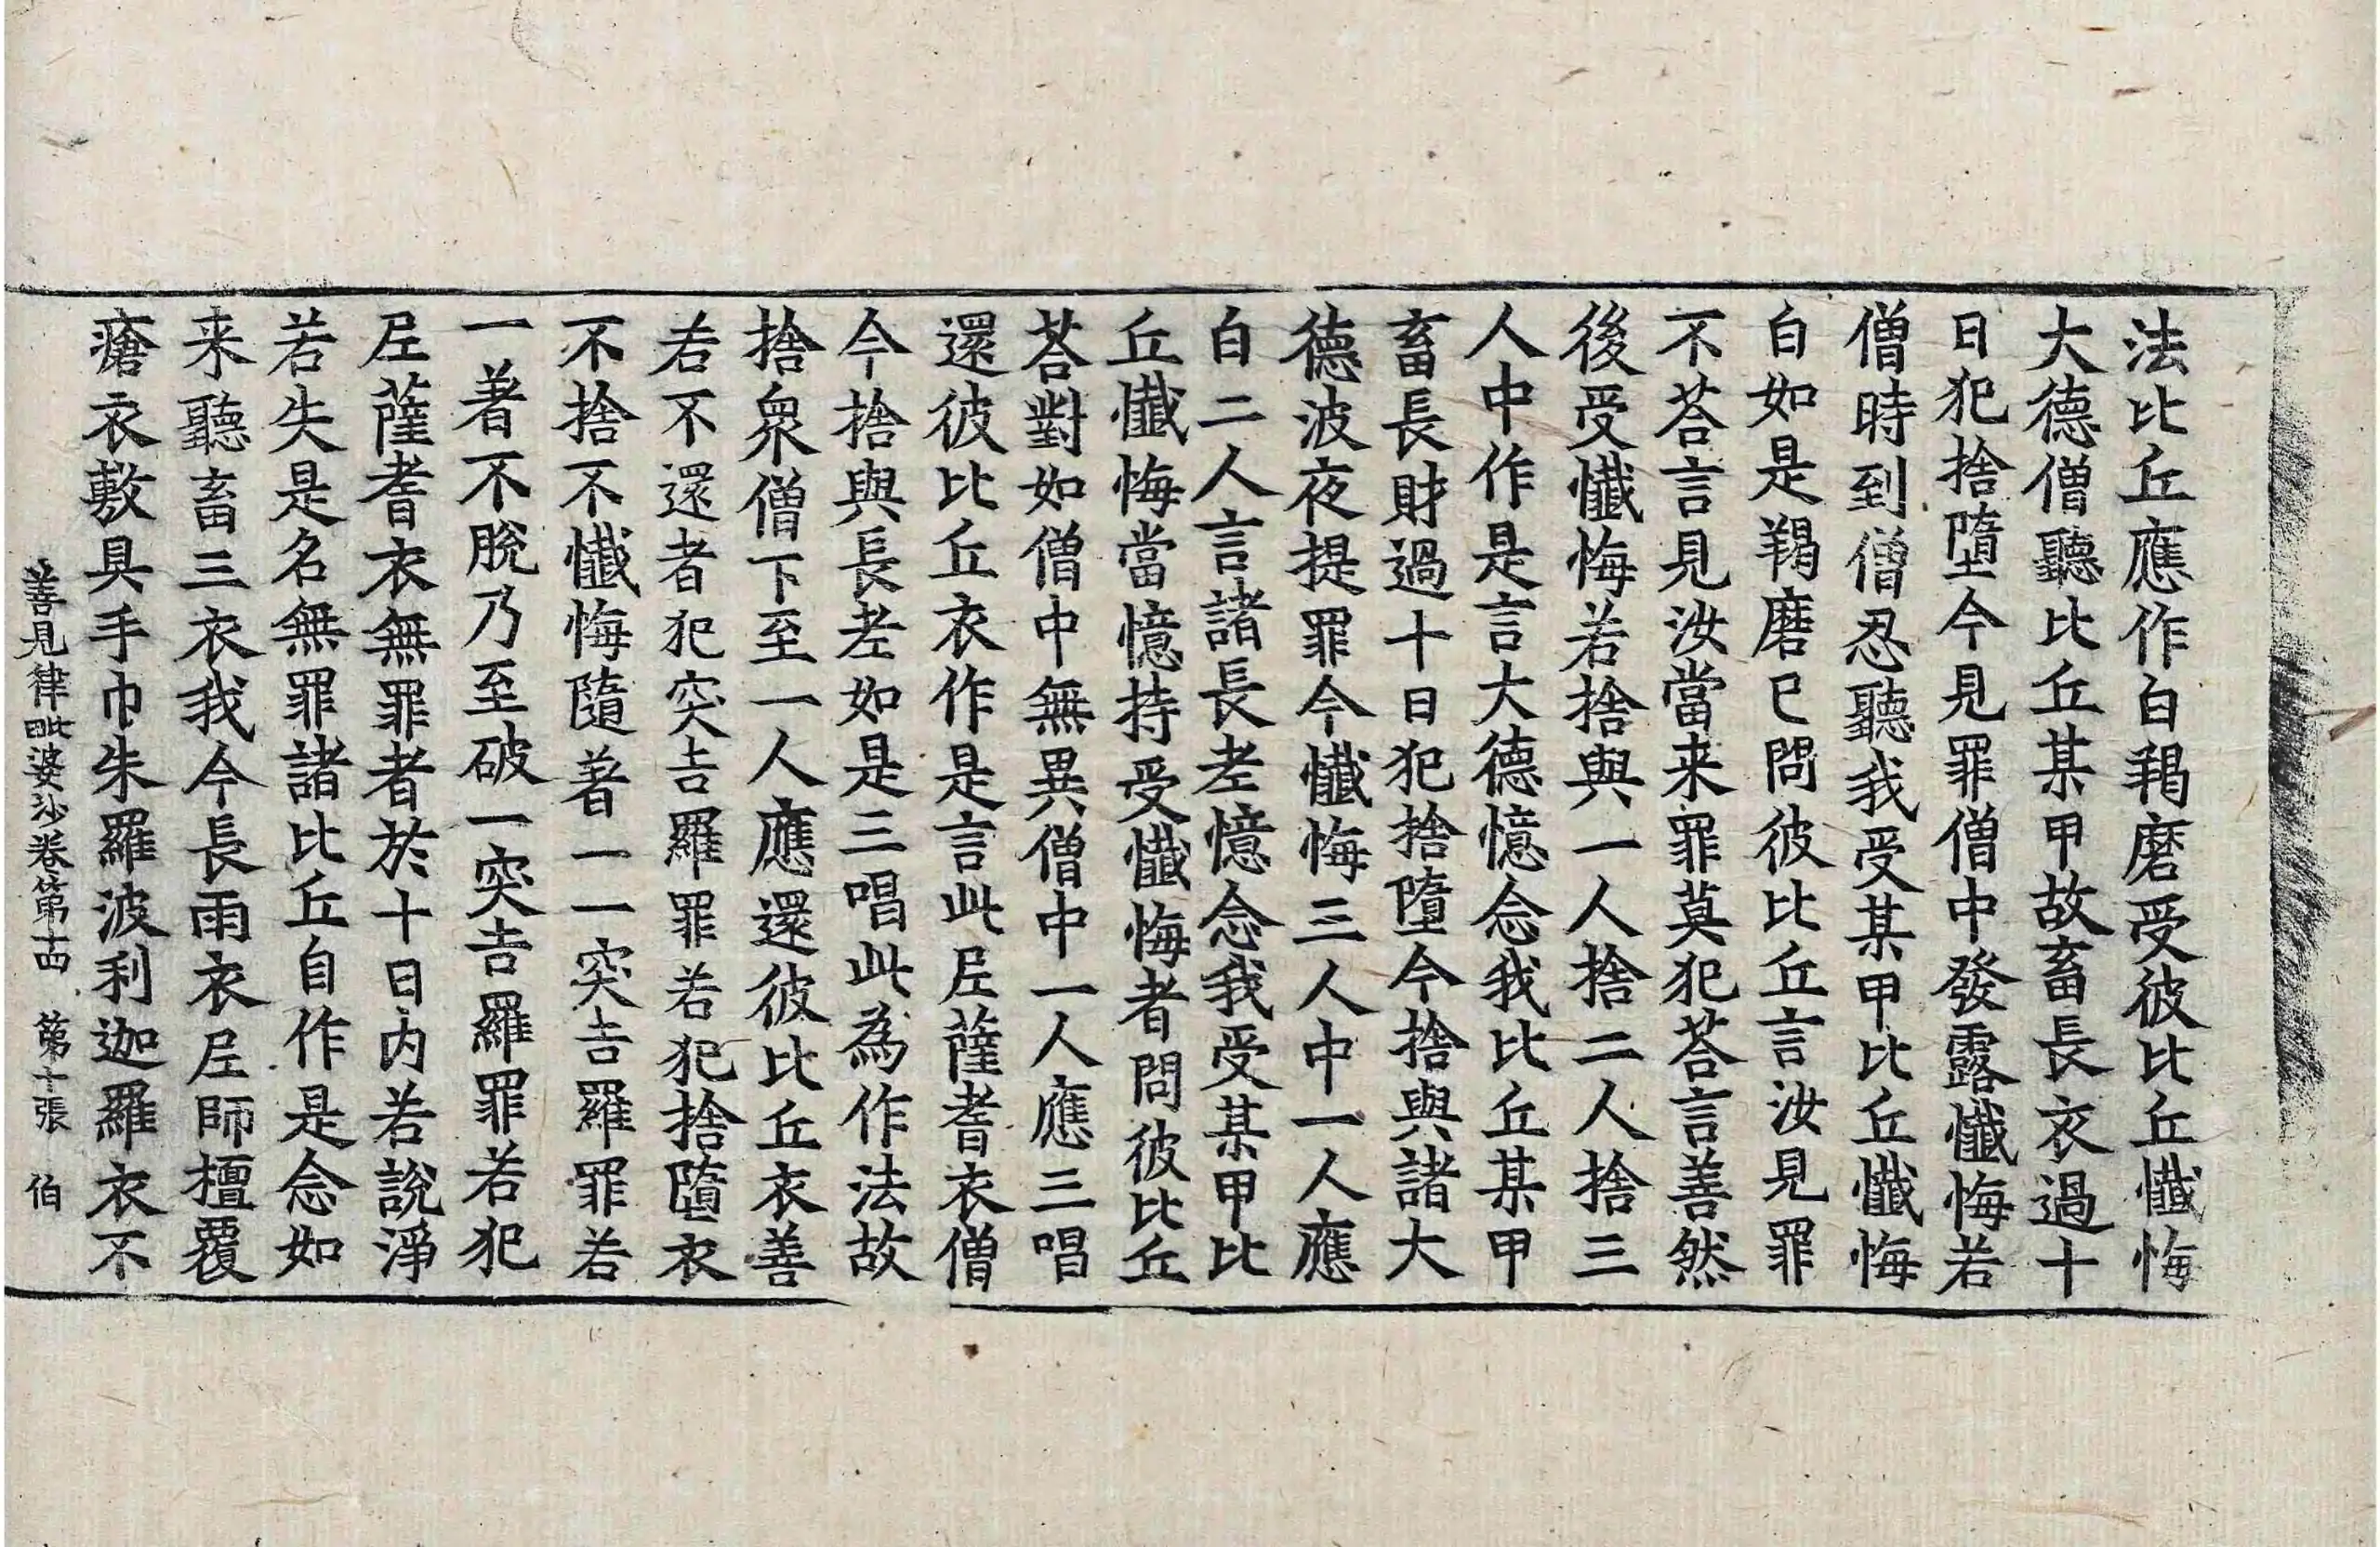 法比丘應作白羯磨受彼比丘懺悔
大德僧聽比丘某甲故畜長衣過十
日犯捨墮今見罪僧中發露懺悔若
僧時到僧忍聽我受某甲比丘懺悔
白如是羯磨已問彼比丘言汝見罪
不荅言見汝當来罪莫犯荅言善然
後受懺悔若捨與一人捨二人捨三
人中作是言大德憶念我比丘某甲
畜長財過十日犯捨墮今捨與諸大
德波夜提罪今懺悔三人中一人應
白二人言諸長老憶念我受某甲比
丘懺悔當憶持受懺悔者問彼比丘
荅對如僧中無異僧中一人應三唱
還彼比丘衣作是言此尼薩耆衣僧
今捨與長老如是三唱此為作法故
捨衆僧下至一人應還彼比丘衣善
若不還者犯突吉羅罪若犯捨墮衣
不捨不懺悔隨著一一突吉羅罪若
一著不脫乃至破一突吉羅罪若犯
尼薩耆衣無罪者於十日内若說淨
若失是名無罪諸比丘自作是念如
来聽畜三衣我今長雨衣尼師檀覆
瘡衣敷具手巾朱羅波利迦羅衣不
善見律毗婆沙卷第十四 第十張 伯